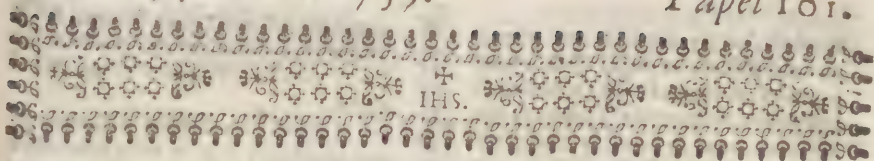 Papel 101.
IHS.